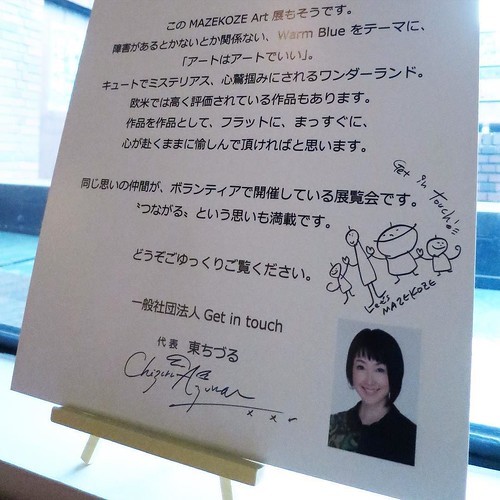 この MAZEKOZE Art 展もそうです。
障害があるとかないとか関係ない、Warm Blue をテーマに、
「アートはアートでいい」。
キュートでミステリアス、心鷲掴みにされるワンダーランド。
欧米では高く評価されている作品もあります。
作品を作品として、フラットに、まっすぐに、
心が赴くままに愉しんで頂ければと思います。
同じ思いの仲間が、ボランティアで開催している展覧会です。
〝つながる〟という思いも満載です。
どうぞごゆっくりご覧ください。
Get in touch!!
Let's
MAZEKOZE
一般社団法人 Get in touch
代表 東ちづる
Chizuru Azuma